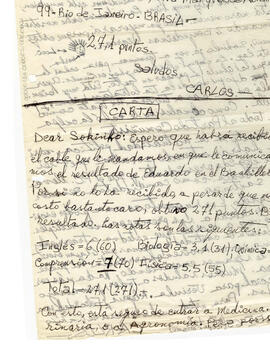 99-Rio de Janeiro-BRASIL-
271 puntos.
Saludos,
CARLOS-
CARTA
Dear Sobinho: Espero que habrá recibido
el cable que le mandamos en que le comunica-
mos el resultado de Eduardo en el Bachiller
Por si no lo ha recibido a pesar de que n
costo bastante caro, obtuvo 271 puntos.
Resultado. has notas son las siguientes:
Inglés=6(60). Biología=3,1(31), Química
Comprensión=7(70) Física=5,5(55)
Total=271(271).
Con esto, está seguro de entrar a Medicina
rinaria, o a Agronomía.